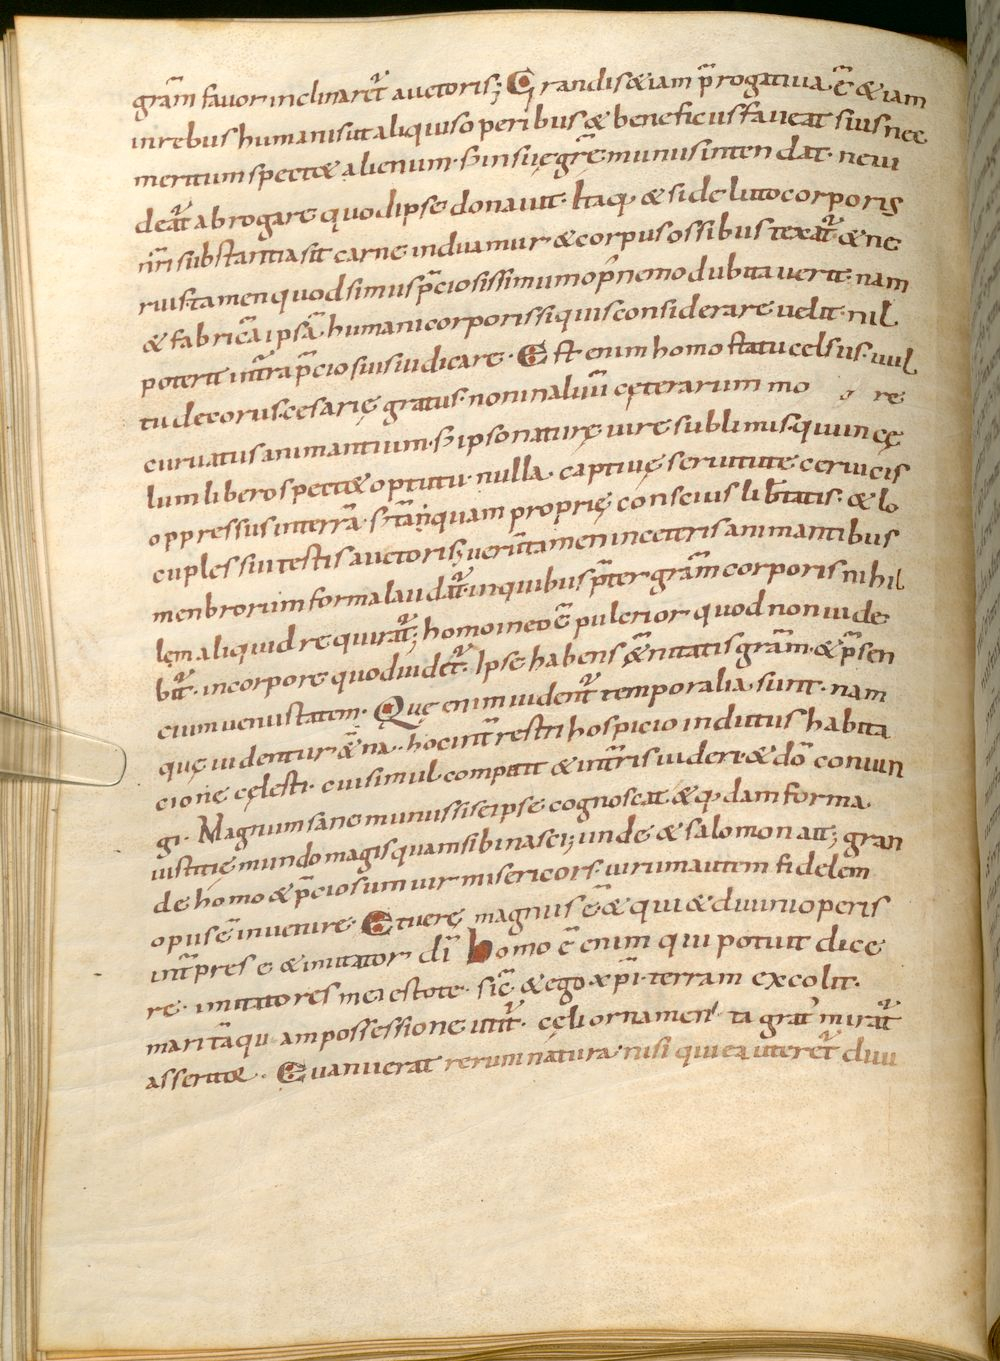 grām favor inclinaret̄ auctoris; Grandis &iam p̄rogatiua ē &iam
in rebus humanis ut aliquis operibus & beneficus faueat suis nec
meritum spect& alienum· s; insuę gr̄ę munus intendat· ne ui
deat̄ abrogare quod ipse donauit· Itaq; & si de luto corporis
nr̄i substantia sit carne induamur & corpus ossibus texat̄ & ne
ruis tamen quod simus p̄ciosissimum op̄ nemo dubitauerit· nam
& fabricā ipsā humani corporis si quis considerare uelit· nil
poterit intra p̄cio suis iudicare· Est enim homo statu celsus· uul
tu decorus· cesarię gratus· non in aluū cęterarum mo re
curuatus animantium· s; ipso naturę iure sublimis· qui in cę
lum libero spect& optutu· nulla captiuę seruitute ceruicis
oppressus in terrā· s; tāquam proprię conscius lib̄tatis· & lo
cuples sui testis auctoris; ueruntamen in ceteris animantibus
menbrorum forma laudat̄· in quibus p̄ter grām corporis nihil
ē aliquid requirat̄; homo in eo ē pulcrior quod non uide
bit̄· in corpore quod uidet̄· Ipse habens &ernitatis grām· & p̄sen
cium uenustatem· Quę enim uident̄ temporalia sunt· nam
quę uidentur &erna·· hoc intr̄ restri hospicio inditus habita
cione cęlesti· cui simul compatit & intrīs uidere & dō coniun
gi· Magnum sane munus si se ipse cognoscat & q; dam forma
iustitię mundo magis quam sibi nasci; unde & salomon ait; gran
de homo & p̄ciosum uir misericors· uirum autem fidelem
opus ē inuenire· Et uere magnus ē & qui & diuini operis
intp̄res e & imitator dī homo ē enim qui potuit dice
re· imitatores mei estote· sic̄ & ego xp̄i· terram excolit·
mari tāquam possessione utit̄· cęli ornamenta grat' mirat̄
asserit&· Euanuerat rerum natura· nisi qui ea uteret̄ diui